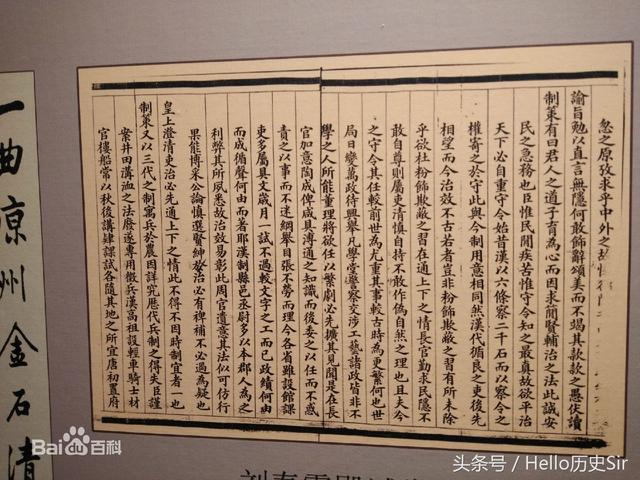 忽之原攷求乎中外之故
諭旨勉以直言無隱何敢飾辭頌美而不竭其款款之愚伏讀
制策有曰君人之道子育為心而因求簡賢輔治之法此誠安
民之急務也臣惟民間疾苦惟守令知之最真故欲平治
天下必自重守令始昔漢以六條察二千石而以察令之
權寄之於守此與今制用意相同然漢代循良之吏後先
相望而今治效不古若者豈非粉飾欺蔽之習有所未除
乎欲杜粉飾欺蔽之習在通上下之情長官勤求民隱不
敢自尊則屬吏清慎自持不敢作偽自然之理也且夫今
之守令其任較前世為尤重其事較古時為更繁何也世
局日變萬政待興舉凡學堂警察交涉工藝諸政皆非不
學之人所能董理將欲任以繁劇必先擴其見聞是在長
官加意陶成俾咸具溥通之知識而後委之以任而不惑
責之以事而不迷綱舉目張不勞而理今各省雖設館課
吏多屬具文歲月一試不過較文字之工而已政績何由
而成循聲何由而著耶漢制縣邑丞尉多以本郡人為之
利弊其所夙悉故治效易彰此周官遺意其法似可仿行
果能博采公論慎選賢紳於治必有裨補不必過為疑也
皇上澄清吏治必先通上下之情此不得不因時制宜者一也
制策又以三代之制寓兵於農因詳究歷代兵制之得失臣謹
案井田溝洫之法廢遂專用徵兵漢高祖設輕車騎士材
官樓船常以秋後講肄課試各隨其地之所宜唐初置府
一曲涼州金石清
Baidu百科
头条号 / Hello历史Sir